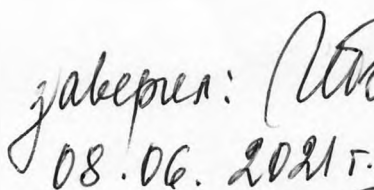 заверил:
08.06.2021 г.